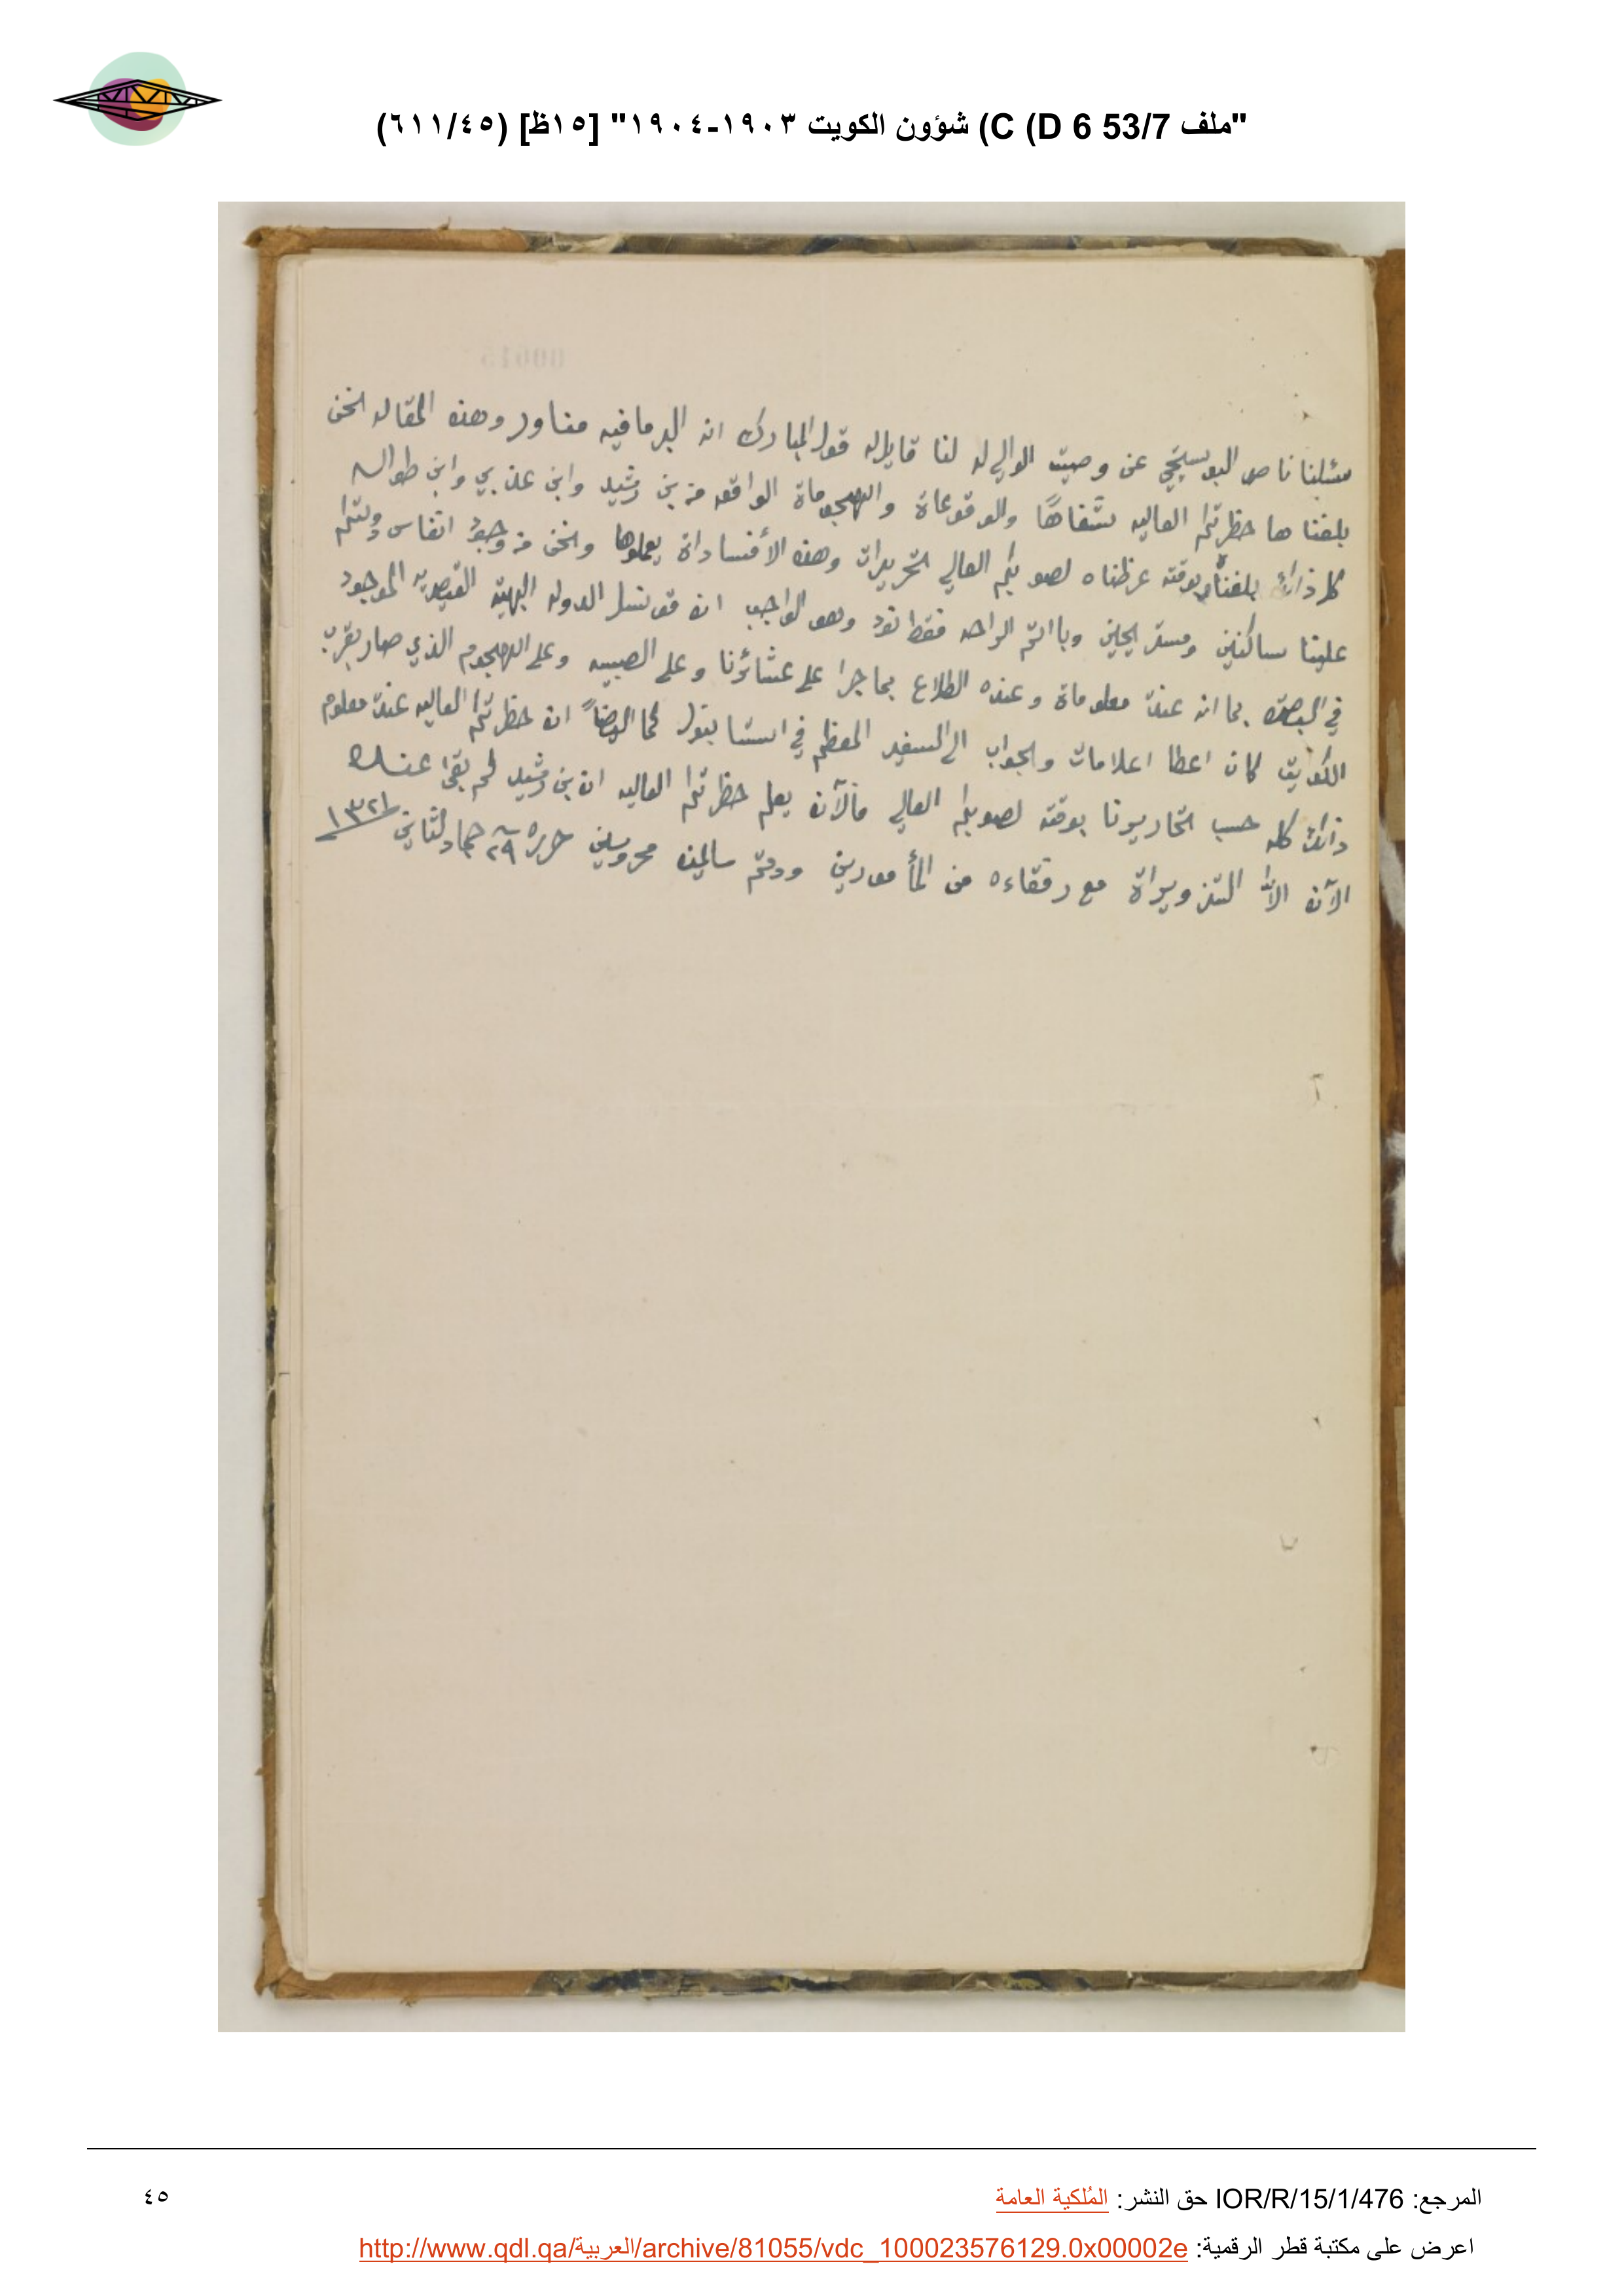 "ملف 53/7 C (D 6) شؤون الكويت ١٩٠٣-١٩٠٤" [١٥ظ] (٦١١/٤٥)
سئلنا ناصر البوسيخي عن وصيت الوالي له لنا قايل له قول المبارك انه البر ما فيه مناور وهذه المقاله نحن
بلغنا ها حظرتكم العاليه شفاهًا والوقوعاة والهجوماة الواقعه من بن رشيد وابن عذبي وابن طواله
كل ذالك بلغناه وبوقته عرظناه لصوبكم العالي التحريرات وهذه الأفساداة يعملوها ونحن من وجود انفاس دولتكم
علينا ساكنين ومستريحين الواحد فقط نود وهو الواجب ان قونسل الدوله البهيه القيصريه الموجود
في البصره بما انه عنده معلوماة وعنده الطلاع بما جرا على عشائرنا وعلى الصبيه وعلى الهجوم الذي صار بقرب
الكويت كان اعطا اعلامات والجواب الى السفير المعظم في استانبول كما ايضاً ان حظرتكم العاليه عنده معلوم
ذالك كله حسب تحاريرنا بوقته لصوبكم العالي فالآن يعلم حظرتكم العاليه ان بن رشيد لم بقى عنده
الآن الاّ التزويراة مع رفقاءه من المأمورين ودمتم سالمين محروسين حرر ٢٩ جماد الثاني ١٣٢١
المرجع: IOR/R/15/1/476 حق النشر: المُلكية العامة
٤٥
اعرض على مكتبة قطر الرقمية: http://www.qdl.qa/العربية/archive/81055/vdc_100023576129.0x00002e